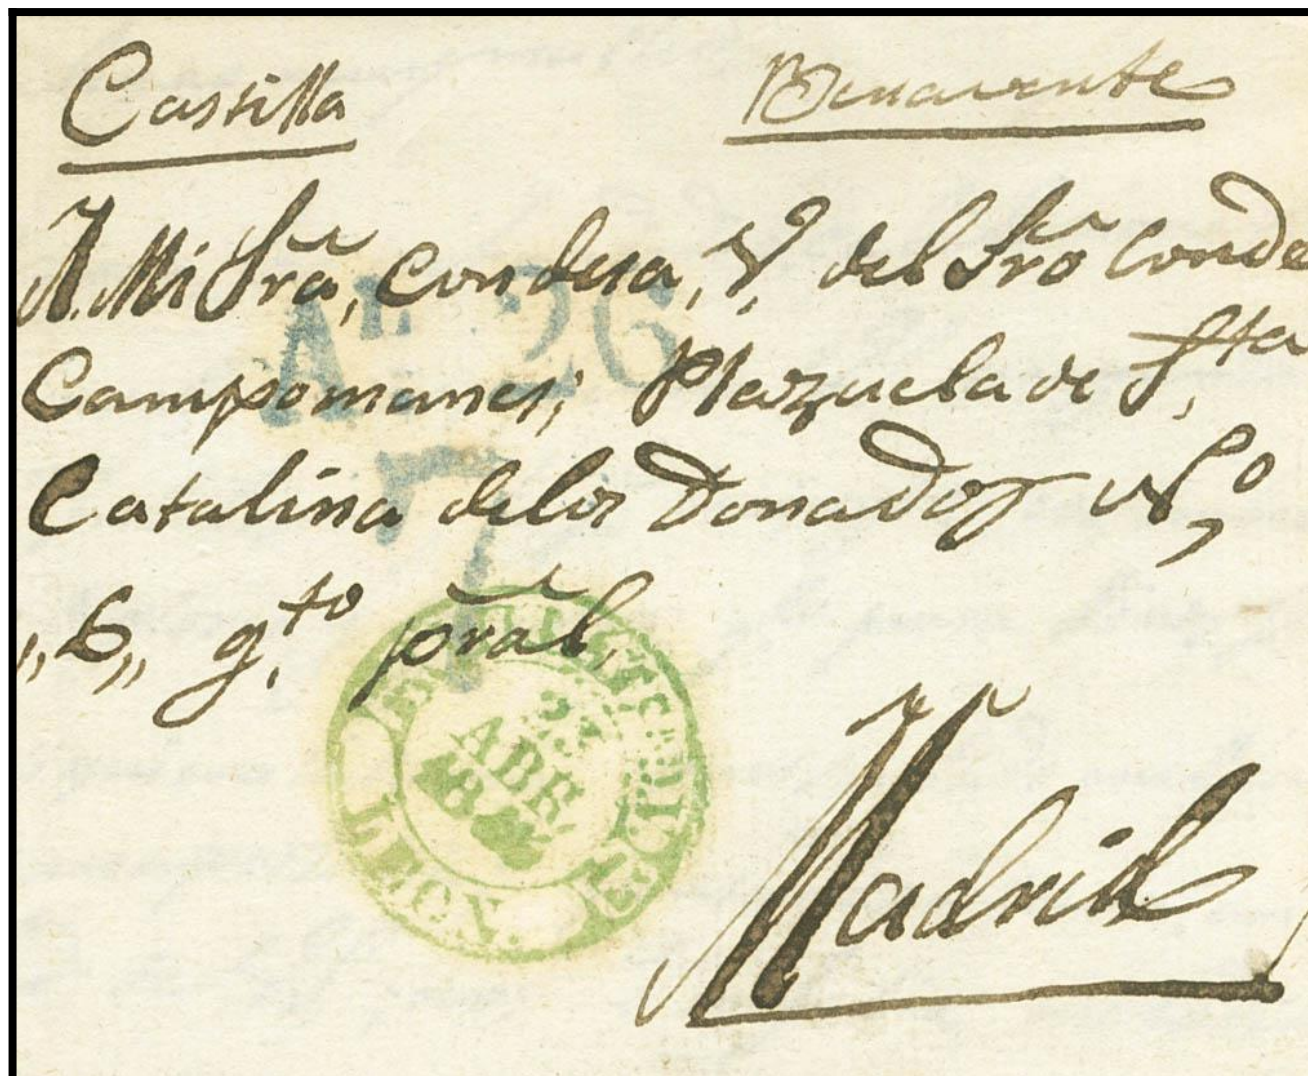 Castilla Benavente
A. Mi Sra, Condesa, Va. del Sro Conde
Campomanes; Plazuela de Sta,
Catalina delos Donados No,
,,6,, q.to pral,
Madrid
An 26
7
ABR
18
LEON.